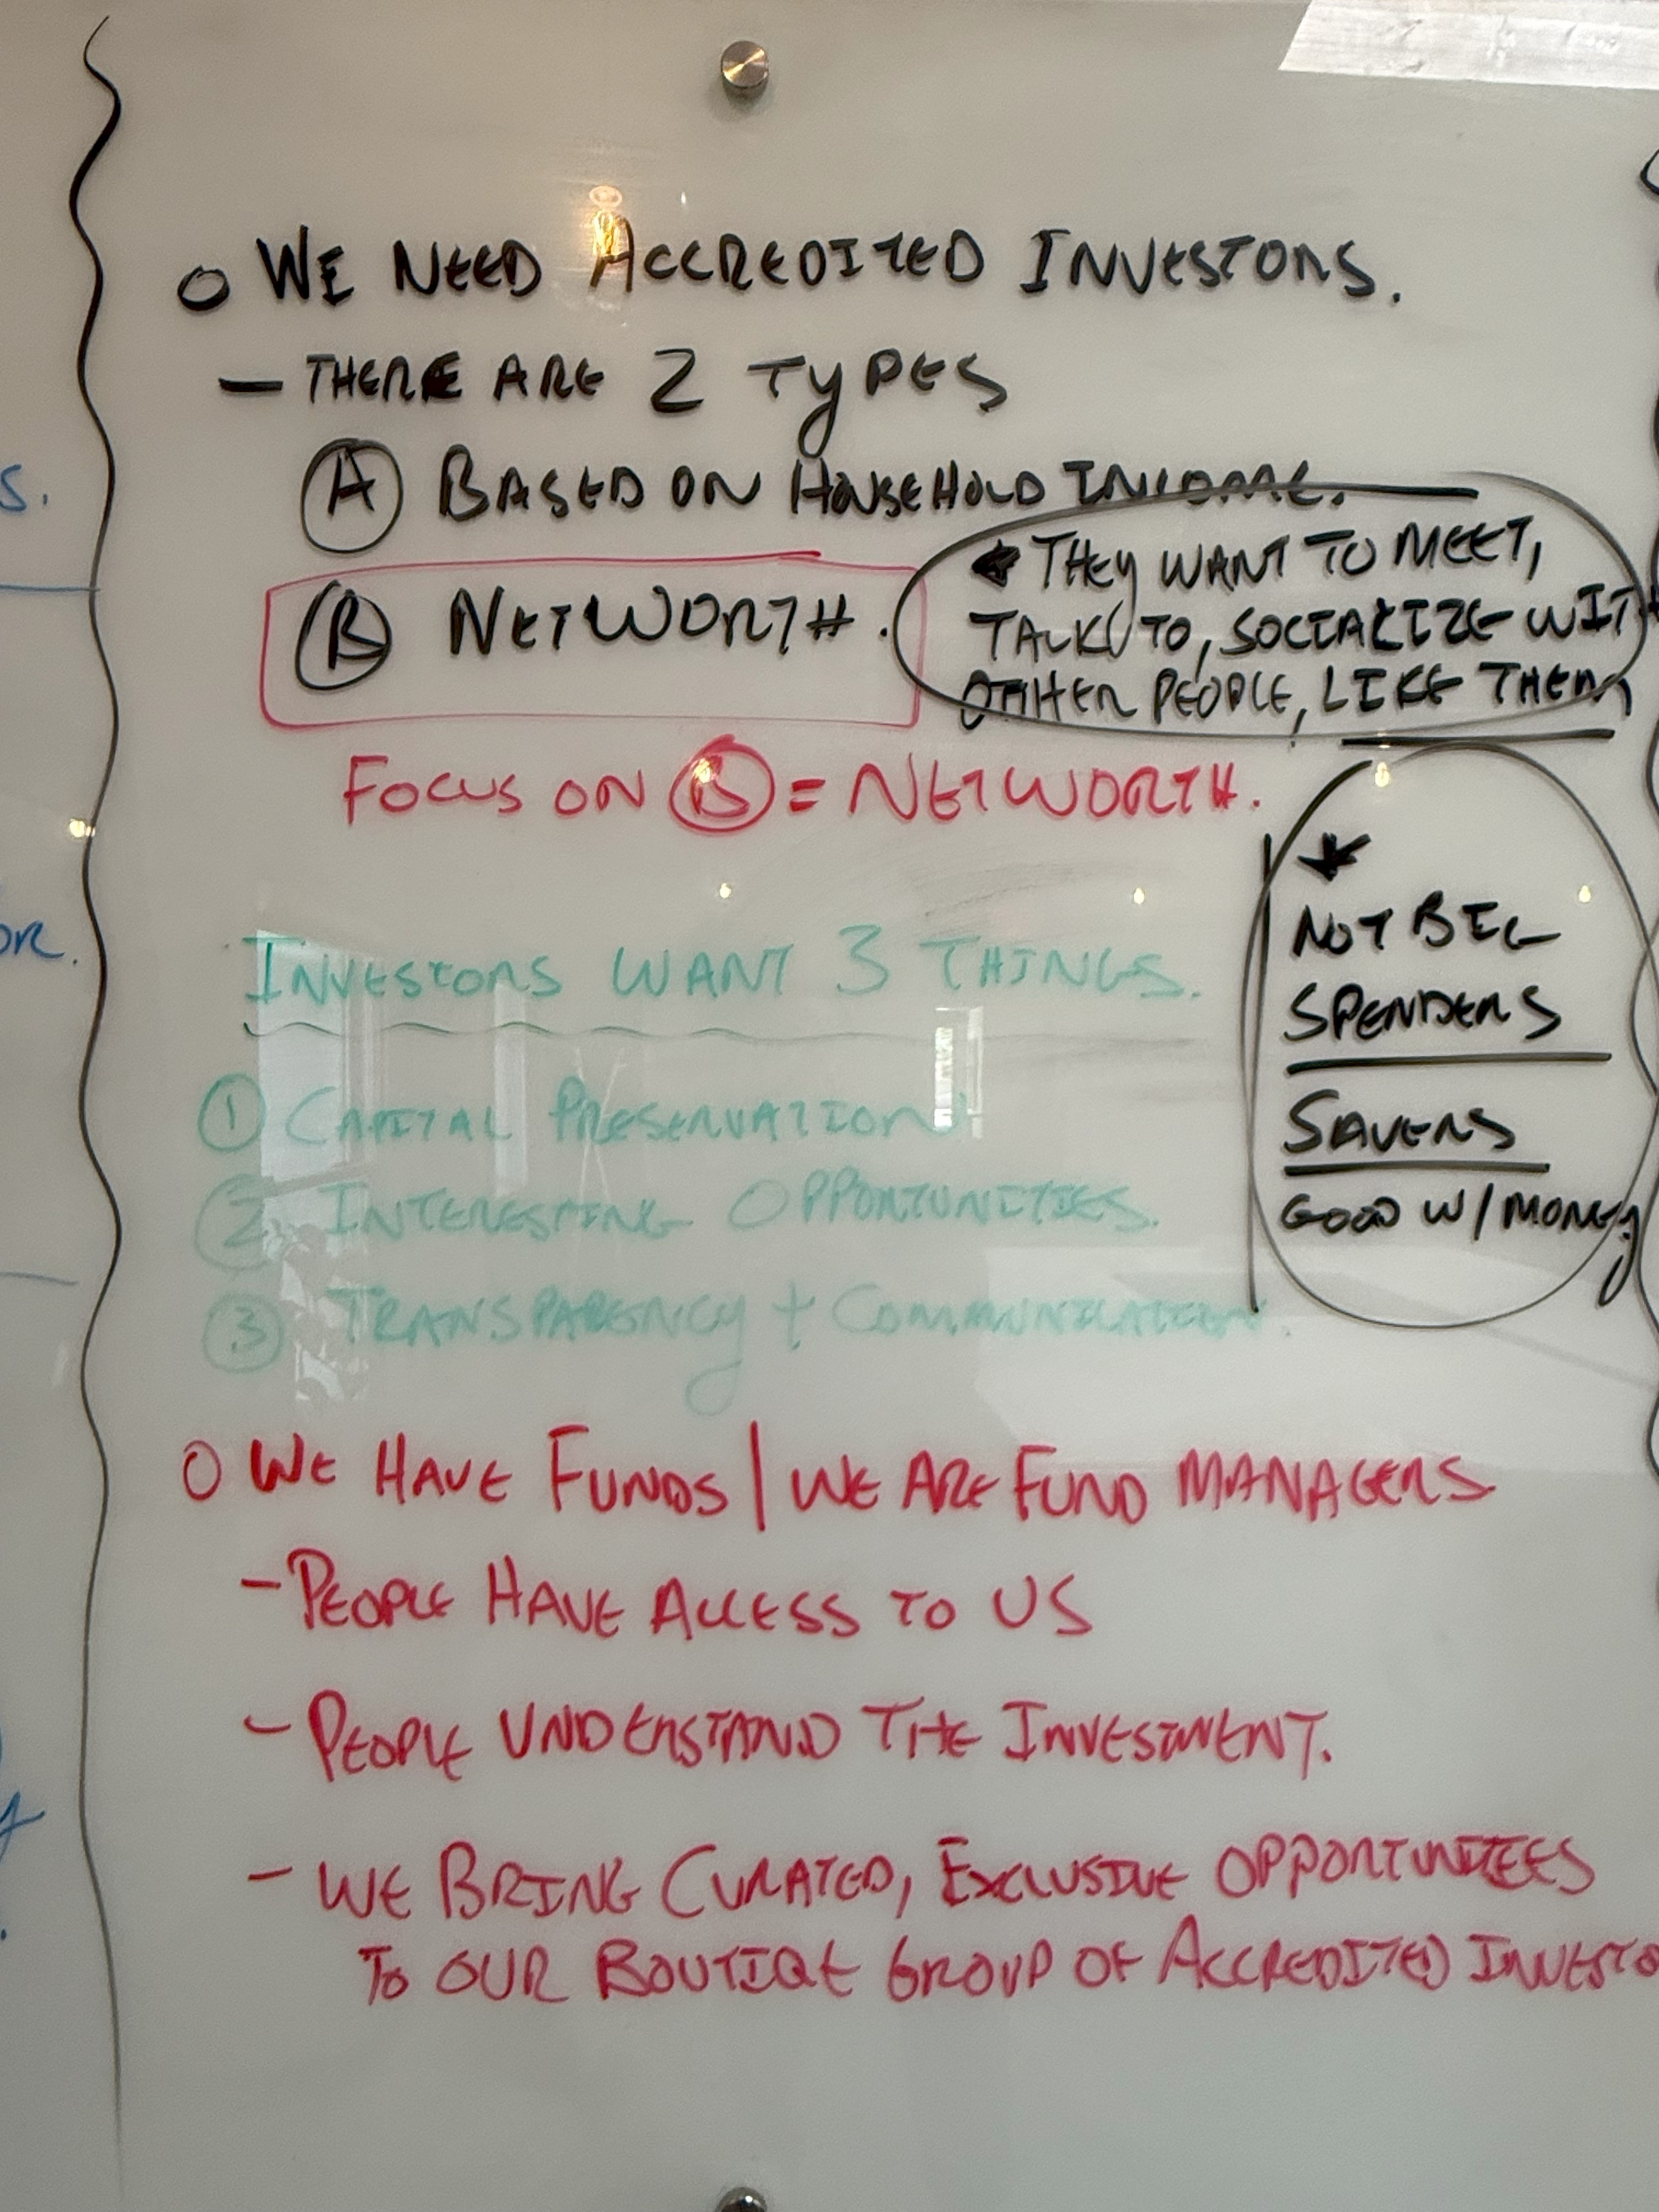 O WE NEED ACCREDITED INVESTORS.
- THERE ARE 2 TYPES
(A) BASED ON HOUSEHOLD INCOME.
(B) NETWORTH.
* THEY WANT TO MEET,
TALK TO, SOCIALIZE WITH
OTHER PEOPLE, LIKE THEM
FOCUS ON (B) = NETWORTH.
*
NOT BIG
SPENDERS
SAVERS
GOOD W/ MONEY
INVESTORS WANT 3 THINGS.
(1) CAPITAL PRESERVATION
(2) INTERESTING OPPORTUNITIES.
(3) TRANSPARENCY + COMMUNICATION.
O WE HAVE FUNDS | WE ARE FUND MANAGERS
- PEOPLE HAVE ACCESS TO US
- PEOPLE UNDERSTAND THE INVESTMENT.
- WE BRING CURATED, EXCLUSIVE OPPORTUNITIES
TO OUR BOUTIQE GROUP OF ACCREDITED INVESTO